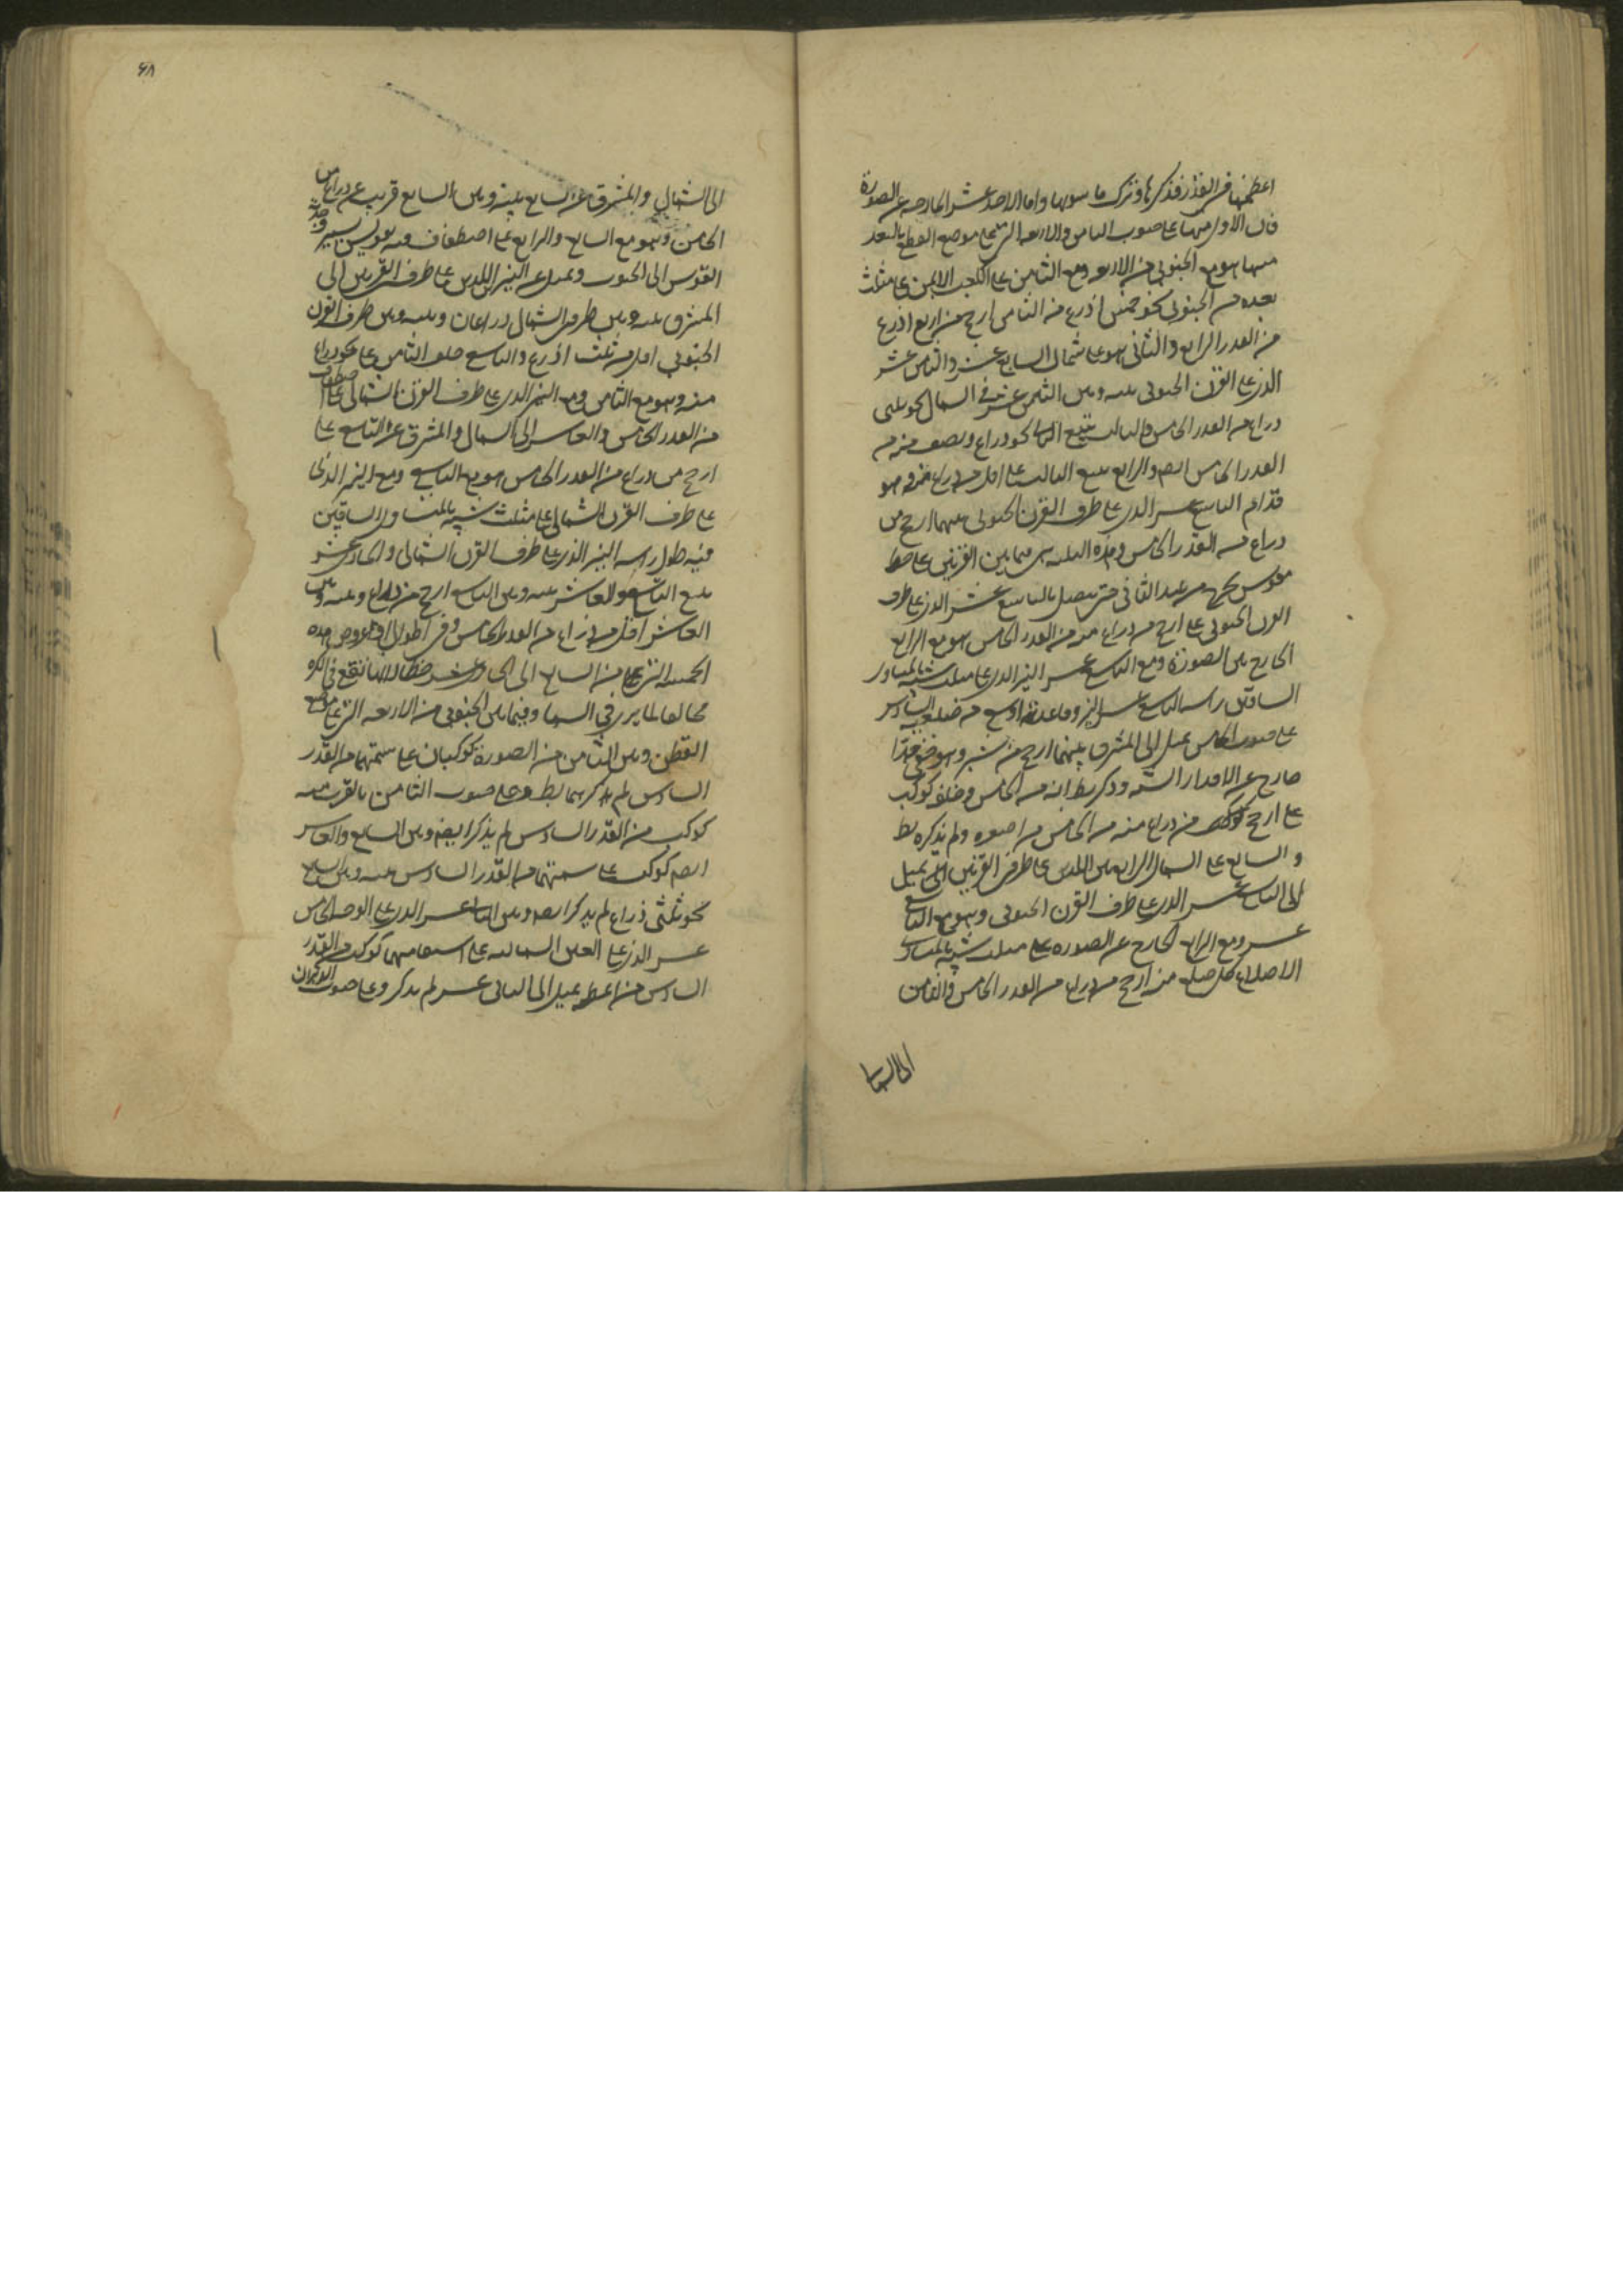 اعظمها فى القدر فذكرها وترك ما سواها واما الاحد عشر الخارجه عن الصورة
فان الاول منها على صوب الثامن والاربعه التى على موضع القطع بالبعد
منها هو مع الجنوبى من الاربعه ومع الثامن على الكعب الايمن على مثلث
بعده من الجنوبى نحو خمس اذرع ومن الثامن ارجح من اربع اذرع
من القدر الرابع والثانى هو على شمال السابع عشر والثامن عشر
الذى على القرن الجنوبى بينه وبين الثامن عشر فى الشمال نحو ثلثى
ذراع من القدر الخامس والثالث يتبع الثانى نحو ذراع ونصف منه من
القدر الخامس ايضا والرابع يتبع الثالث على اقل من ذراع منه وهو
قدام التاسع عشر الذى على طرف القرن الجنوبى بينهما ارجح من
ذراع من القدر الخامس وهذه الثلثه هى فيما بين القرنين على خط
مقوس يخرج من عند الثانى حتى يتصل بالتاسع عشر الذى على طرف
القرن الجنوبى على ارجح من ذراع منه من القدر الخامس هو مع الرابع
الخارج عن الصورة ومع التاسع عشر النير الذى على مثلث شبيه بالمتساوى
الساقين راسه التاسع عشر النير وقاعدته اوسع من ضلعيه والسادس
على صوب الخامس يميل الى المشرق بينهما ارجح من شبر وهو خفى جدا
خارج عن الاقدار الستة وذكر بط انه من الخامس وخلفه كوكب
على ارجح من ذراع منه من الخامس من اصغره ولم يذكره بط
والسابع على الشمال الرابع بين اللذين على طرفى القرنين الا انه يميل
الى التاسع عشر الذى على طرف القرن الجنوبى وهو مع التاسع
عشر ومع الرابع الخارج عن الصورة على مثلث شبيه بالمتساوى
الاضلاع كل ضلع منه ارجح من ذراع من القدر الخامس والثامن
الى الشمال
٦٨
الى الشمال والمشرق عن السابع بينه وبين السابع قريب من ذراع من
الخامس وهو مع السابع والرابع على اصطفاف فيه تقويس يسير وحدبة
القوس الى الجنوب ويميل عن النيرين اللذين على طرف القرنين الى
المشرق بينه وبين طرف الشمالى ذراعان وبينه وبين طرف القرن
الجنوبى اقل من ثلث اذرع والتاسع خلف الثامن على نحو ذراع
منه وهو مع الثامن ومع النير الذى على طرف القرن الشمالى على اصطفاف
من القدر الخامس والعاشر الى الشمال والمشرق عن التاسع على
ارجح من ذراع من القدر الخامس هو مع التاسع ومع النير الذى
على طرف القرن الشمالى على مثلث شبيه بالمتساوى الساقين
فيه طول راسه النير الذى على طرف القرن الشمالى والحادى عشر
يتبع التاسع والعاشر بينه وبين التاسع ارجح من ذراع وبينه وبين
العاشر اقل من ذراع من القدر الخامس وفى اطوال وعروض هذه
الخمسة التى من السابع الى الحادى عشر خطا لانها تقع فى الكره
مخالفا لما يرى فى السما وفيما بين الجنوبى من الاربعه التى على موضع
القطع وبين الثامن من الصورة كوكبان على سمتهما من القدر
السادس لم يذكرهما بط وعلى صوب الثامن بالقرب منه
كوكب من القدر السادس لم يذكر ايضا وبين السابع والعاشر
ايضا كوكب على سمتهما من القدر السادس بينه وبين السابع
نحو ثلثى ذراع لم يذكر ايضا وبين الثانى عشر الذى على الوجه والخامس
عشر الذى على العين الشمالية على استقامتهما كوكب من القدر
السادس من اعظمه يميل الى الثانى عشر لم يذكر وعلى صوب الكوكبان